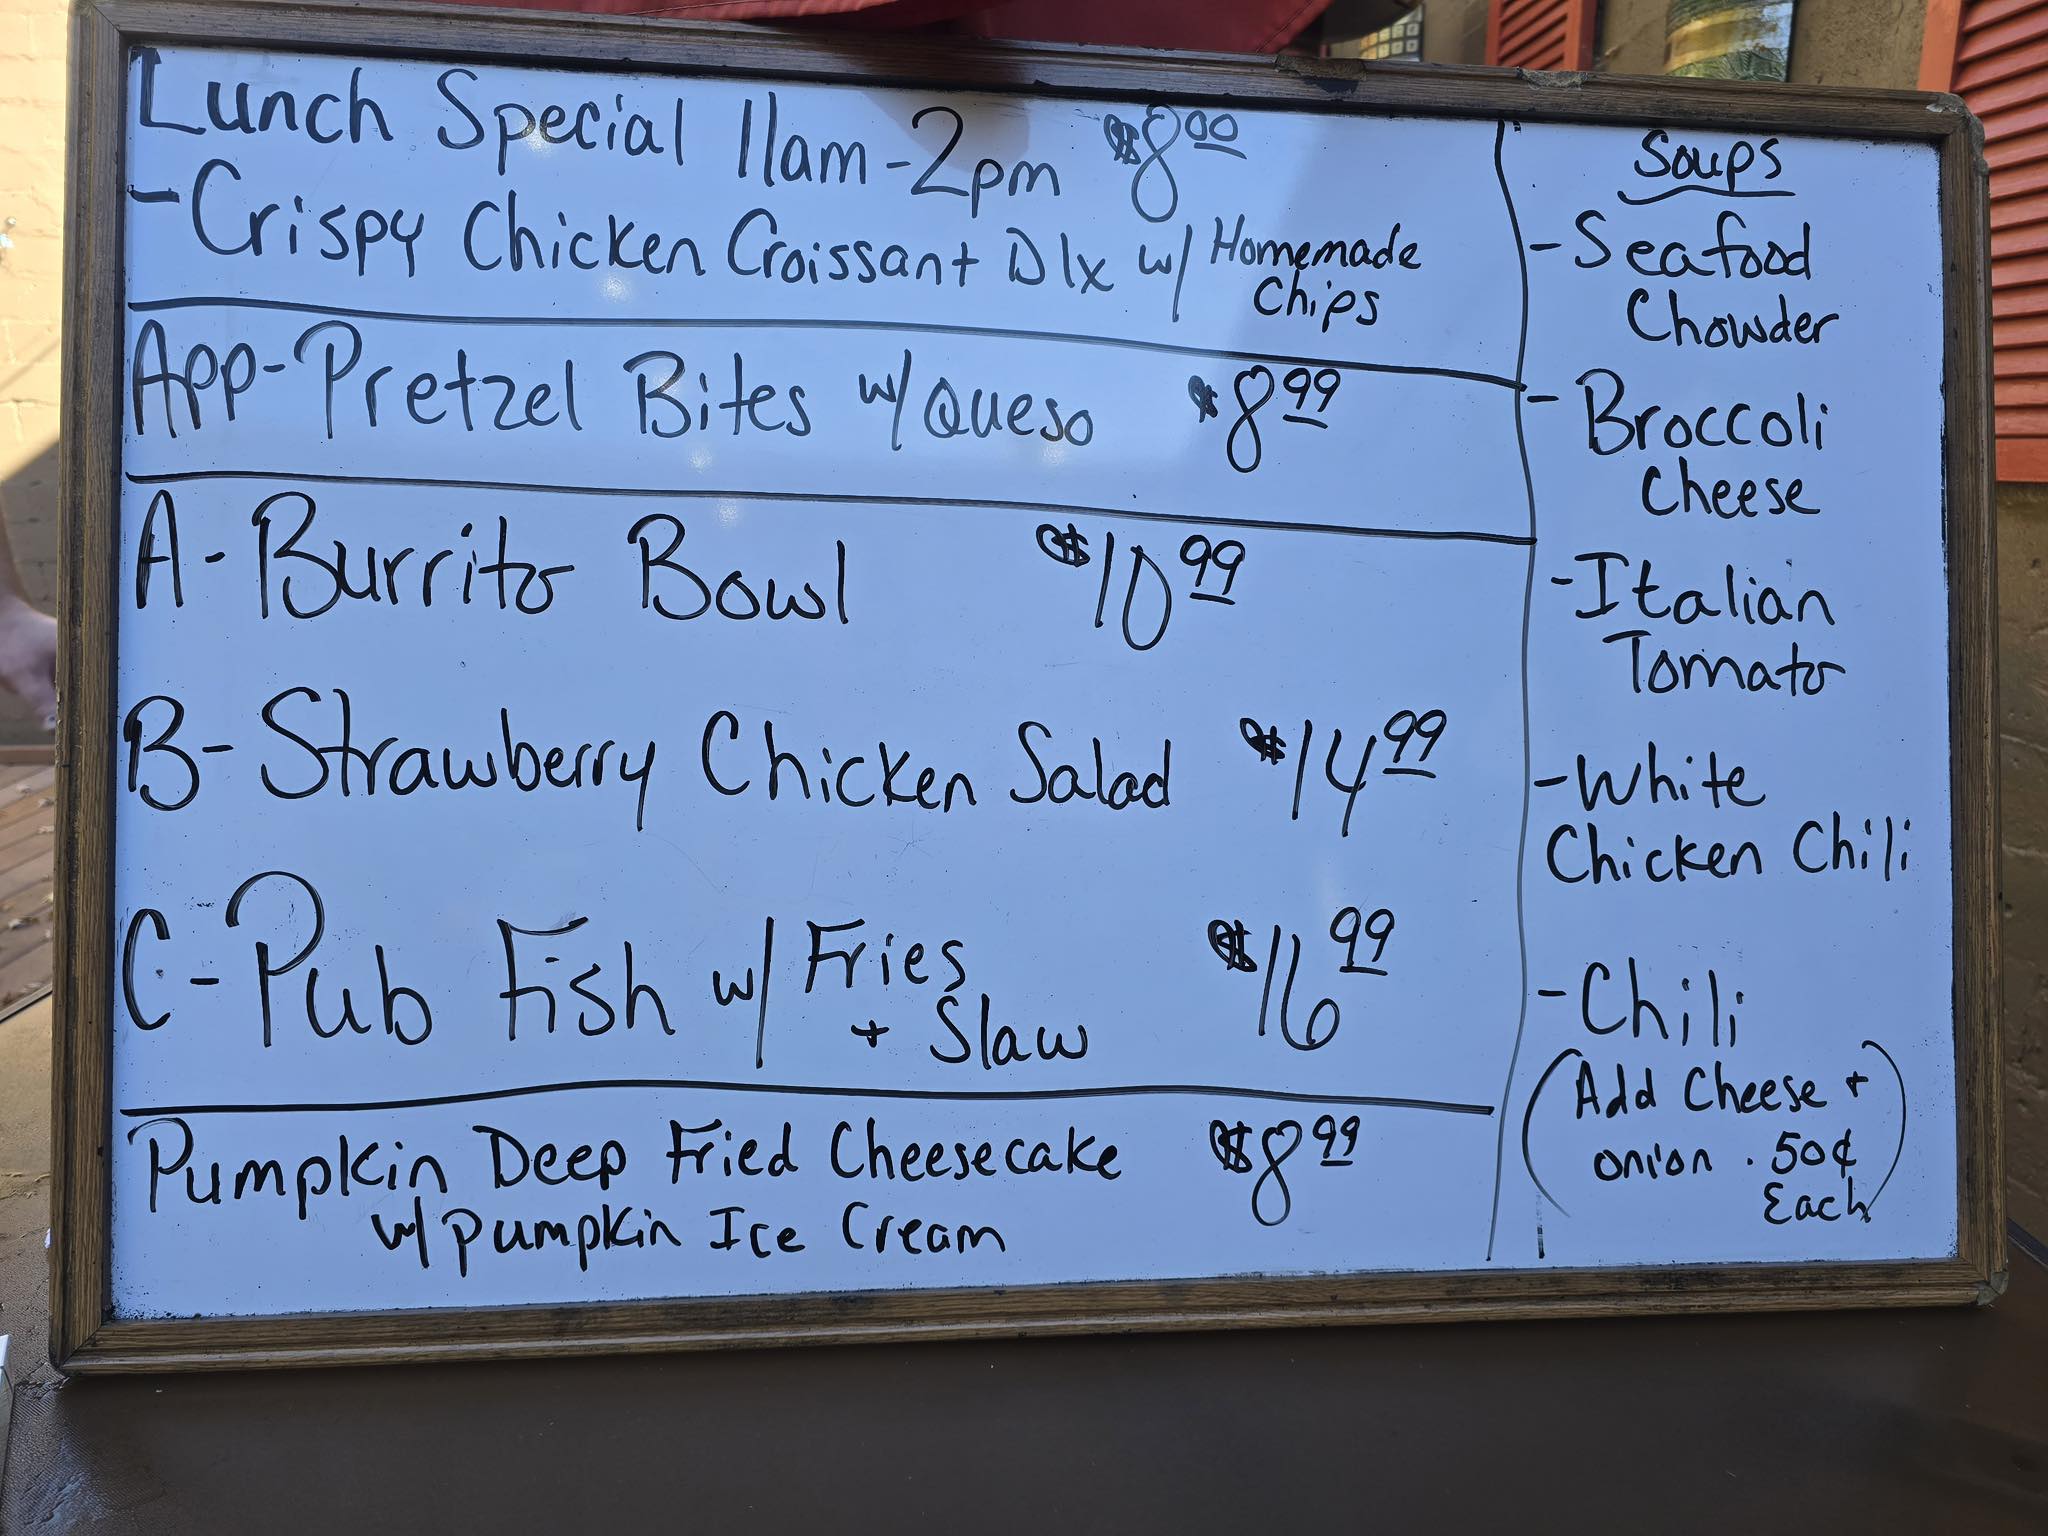 Lunch Special 11am-2pm $8.00
-Crispy Chicken Croissant Dlx w/ Homemade
Chips
App-Pretzel Bites w/ Queso $8.99
A-Burrito Bowl $10.99
B-Strawberry Chicken Salad $14.99
C-Pub Fish w/ Fries
+ Slaw $16.99
Pumpkin Deep Fried Cheesecake $8.99
w/ Pumpkin Ice Cream
Soups
-Seafood
Chowder
-Broccoli
Cheese
-Italian
Tomato
-White
Chicken Chili
-Chili
(Add Cheese +
onion .50¢
Each)